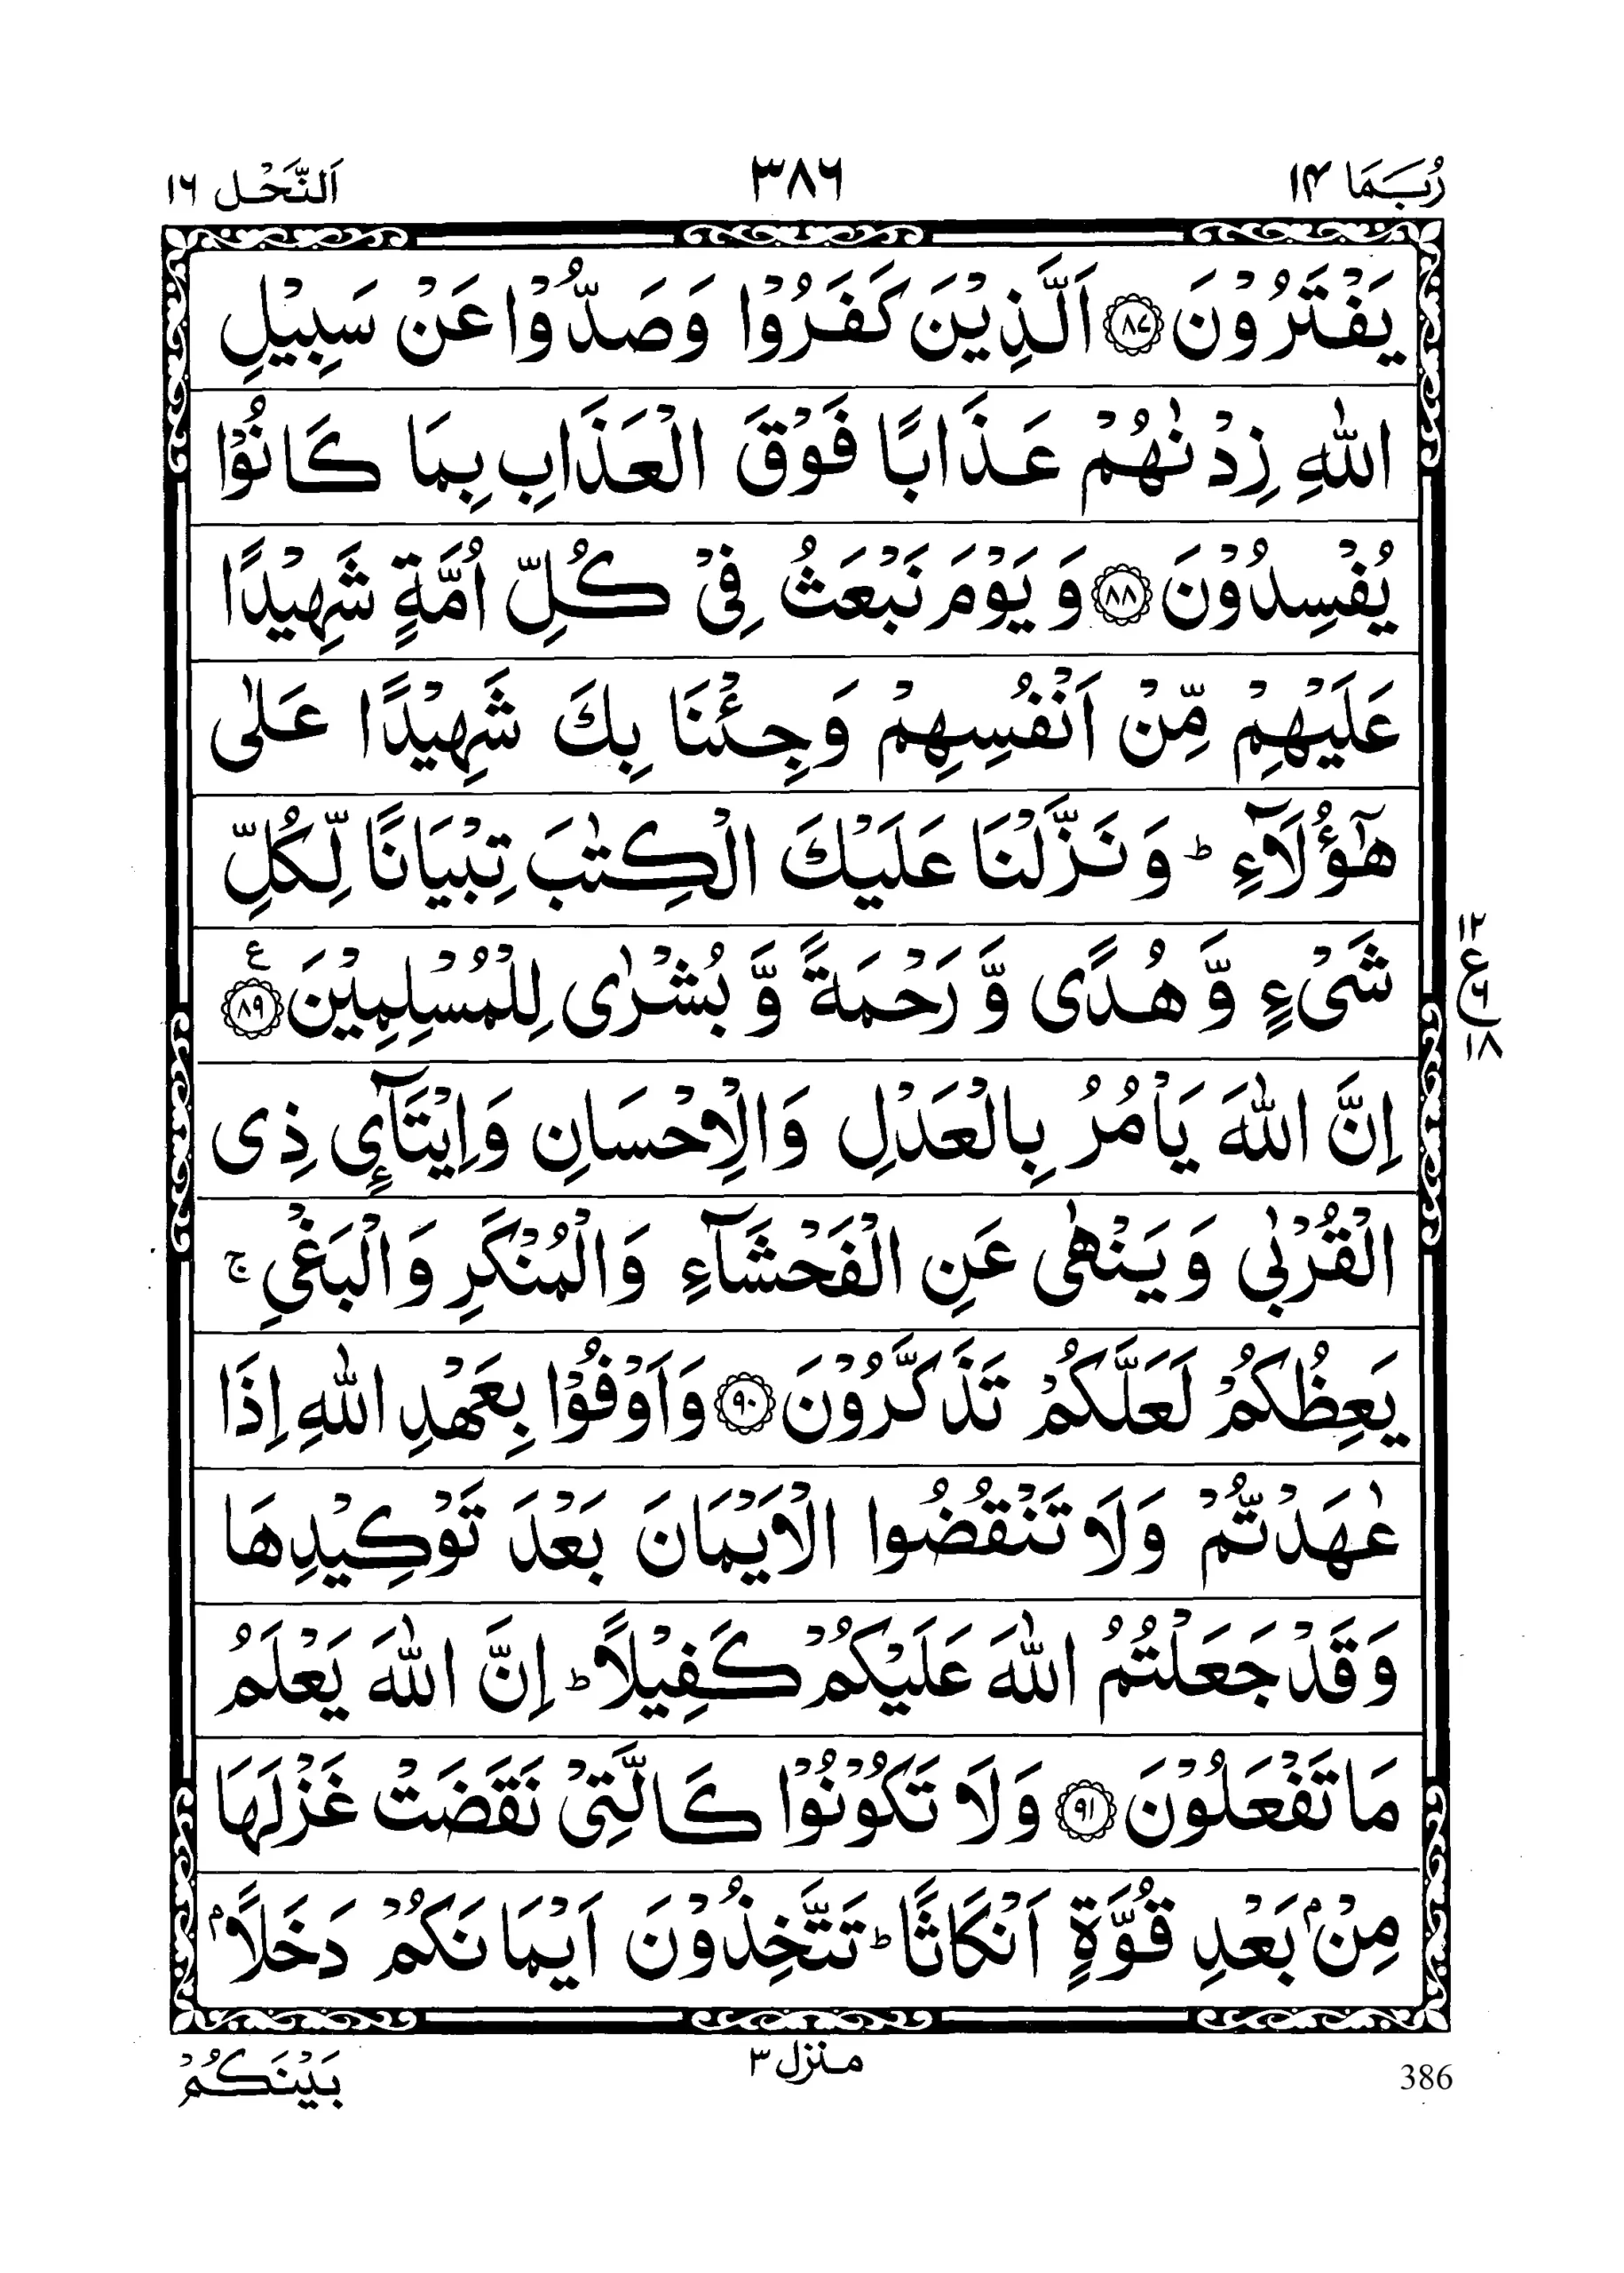 رُبَمَا ۱۴
۳۸۶
اَلنَّحْل ۱۶
يَفْتَرُوْنَ ۝۸۷ اَلَّذِيْنَ كَفَرُوْا وَصَدُّوْا عَنْ سَبِيْلِ
اللّٰهِ زِدْنٰهُمْ عَذَابًا فَوْقَ الْعَذَابِ بِمَا كَانُوْا
يُفْسِدُوْنَ ۝۸۸ وَ يَوْمَ نَبْعَثُ فِيْ كُلِّ اُمَّةٍ شَهِيْدًا
عَلَيْهِمْ مِّنْ اَنْفُسِهِمْ وَجِئْنَا بِكَ شَهِيْدًا عَلٰى
هٰٓؤُلَآءِ ؕ وَ نَزَّلْنَا عَلَيْكَ الْكِتٰبَ تِبْيَانًا لِّكُلِّ
شَيْءٍ وَّ هُدًى وَّ رَحْمَةً وَّ بُشْرٰى لِلْمُسْلِمِيْنَ ۝۸۹ ع
۱۲
ع
۶
۱۸
اِنَّ اللّٰهَ يَاْمُرُ بِالْعَدْلِ وَالْاِحْسَانِ وَاِيْتَآئِ ذِى
الْقُرْبٰى وَيَنْهٰى عَنِ الْفَحْشَآءِ وَالْمُنْكَرِ وَالْبَغْيِ ۚ
يَعِظُكُمْ لَعَلَّكُمْ تَذَكَّرُوْنَ ۝۹۰ وَاَوْفُوْا بِعَهْدِ اللّٰهِ اِذَا
عٰهَدْتُّمْ وَلَا تَنْقُضُوا الْاَيْمَانَ بَعْدَ تَوْكِيْدِهَا
وَقَدْ جَعَلْتُمُ اللّٰهَ عَلَيْكُمْ كَفِيْلًا ؕ اِنَّ اللّٰهَ يَعْلَمُ
مَا تَفْعَلُوْنَ ۝۹۱ وَلَا تَكُوْنُوْا كَالَّتِيْ نَقَضَتْ غَزْلَهَا
مِنْۢ بَعْدِ قُوَّةٍ اَنْكَاثًا ؕ تَتَّخِذُوْنَ اَيْمَانَكُمْ دَخَلًاۢ
منزل ۳
بَيْنَكُمْ
386